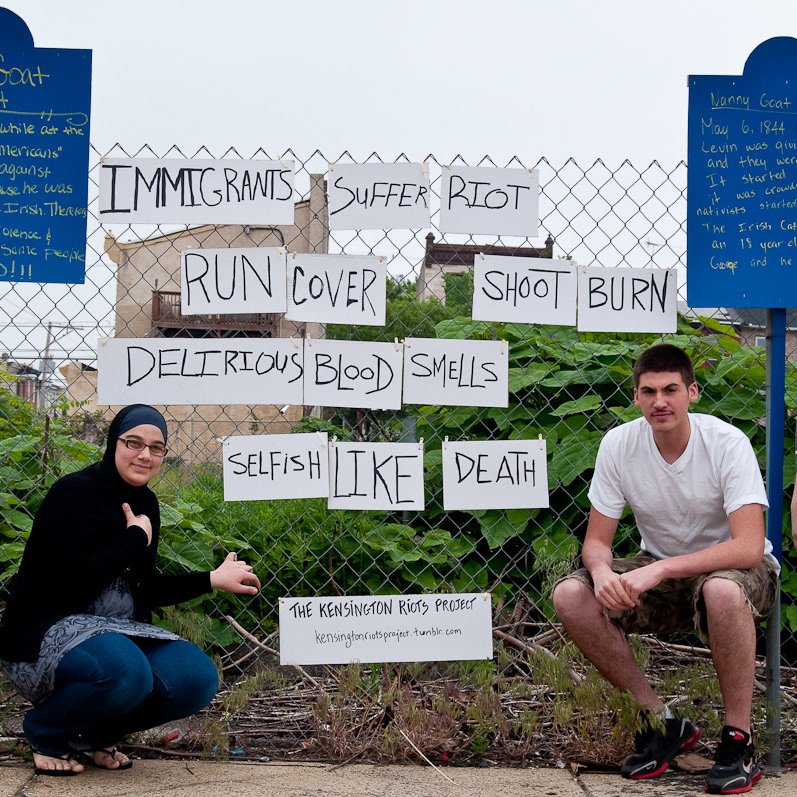 Goat
while at the
mericans"
against
he was
Irish. Therefore
Some people
!!!
IMMIGRANTS SUFFER RIOT
RUN COVER SHOOT BURN
DELIRIOUS BLOOD SMELLS
SELFISH LIKE DEATH
THE KENSINGTON RIOTS PROJECT
kensingtonriotsproject.tumblr.com
Nanny Goat
May 6, 1844
Levin was givi
and they were
It started
it was crowd
nativists started
The Irish Cat
an 18 year ol
George and he